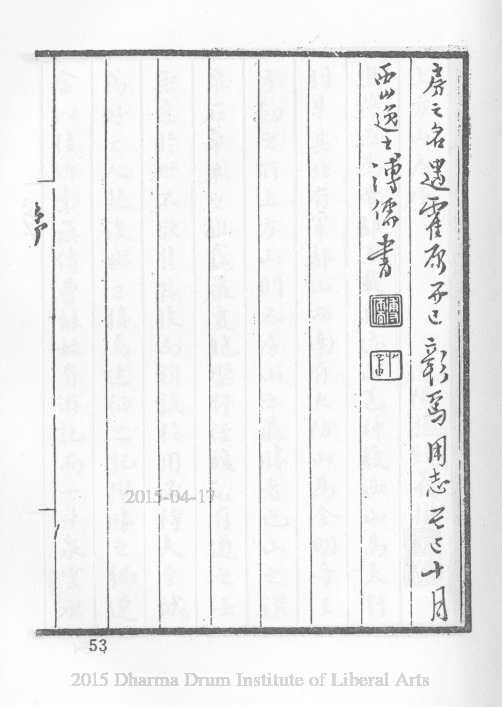 房之名遘霍原而已彰焉用志己巳十月
西山逸士溥儒書
2015-04-17
53
2015 Dharma Drum Institute of Liberal Arts